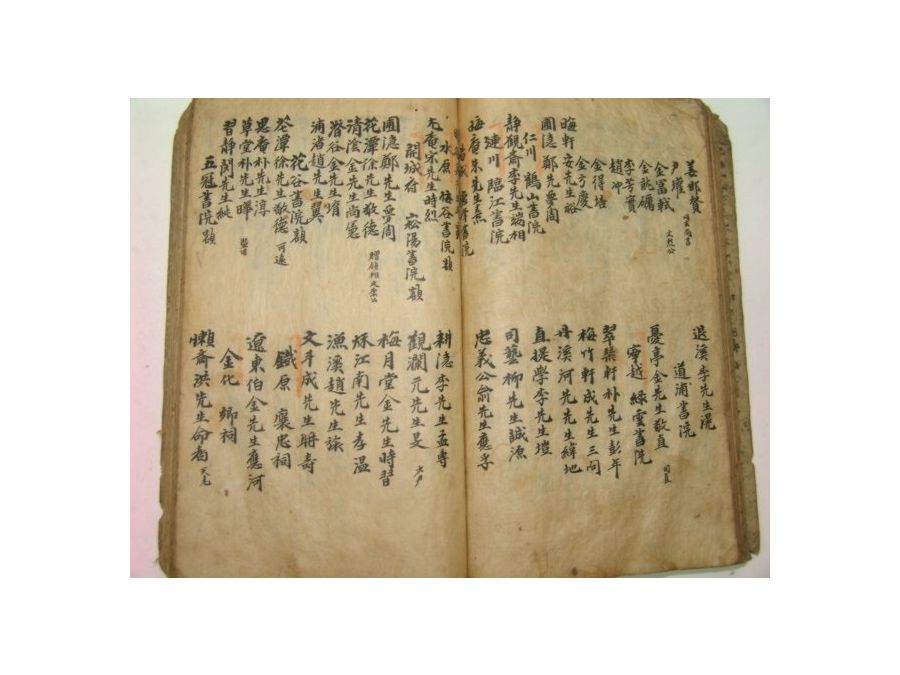 姜邯贊
尹瓘
金富軾 文烈公
金就礪
李芳實
趙冲
金得培
金方慶
晦軒安先生裕
圃隱鄭先生夢周
仁川 鶴山書院
靜觀齋李先生端相
漣川 臨江書院
晦庵朱先生熹
水原 梅谷書院 額
尤庵宋先生時烈
開城府 崧陽書院 額
圃隱鄭先生夢周
花潭徐先生敬德
清陰金先生尚憲
潛谷金先生堉
浦渚趙先生翼
花谷書院 額
花潭徐先生敬德 可遠
思庵朴先生淳
草堂先生曄
習靜閔先生純
五冠書院 額
退溪李先生滉
道浦書院
憂亭金先生敬直
寧越 綠雲書院
翠琹軒朴先生彭年
梅竹軒成先生三問
丹溪河先生緯地
直提學李先生塏
司藝柳先生誠源
忠義公俞先生應孚
耕隱李先生孟專
觀瀾元先生昊
梅月堂金先生時習
秋江南先生孝溫
漁溪趙先生旅
文斗成先生聃壽
鐵原 褒忠祠
遼東伯金先生應河
金化 鄉祠
懶齋洪先生命耉